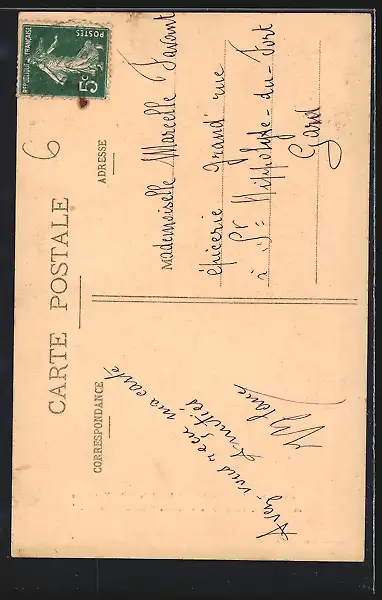 CARTE POSTALE
CORRESPONDANCE
ADRESSE
RÉPUBLIQUE FRANÇAISE
POSTES
5c
6
Avez-vous reçu ma carte
Amitiés
Mademoiselle Marcelle Favant
épicerie Grand' rue
à St= Hippolyte-du-Fort
Gard